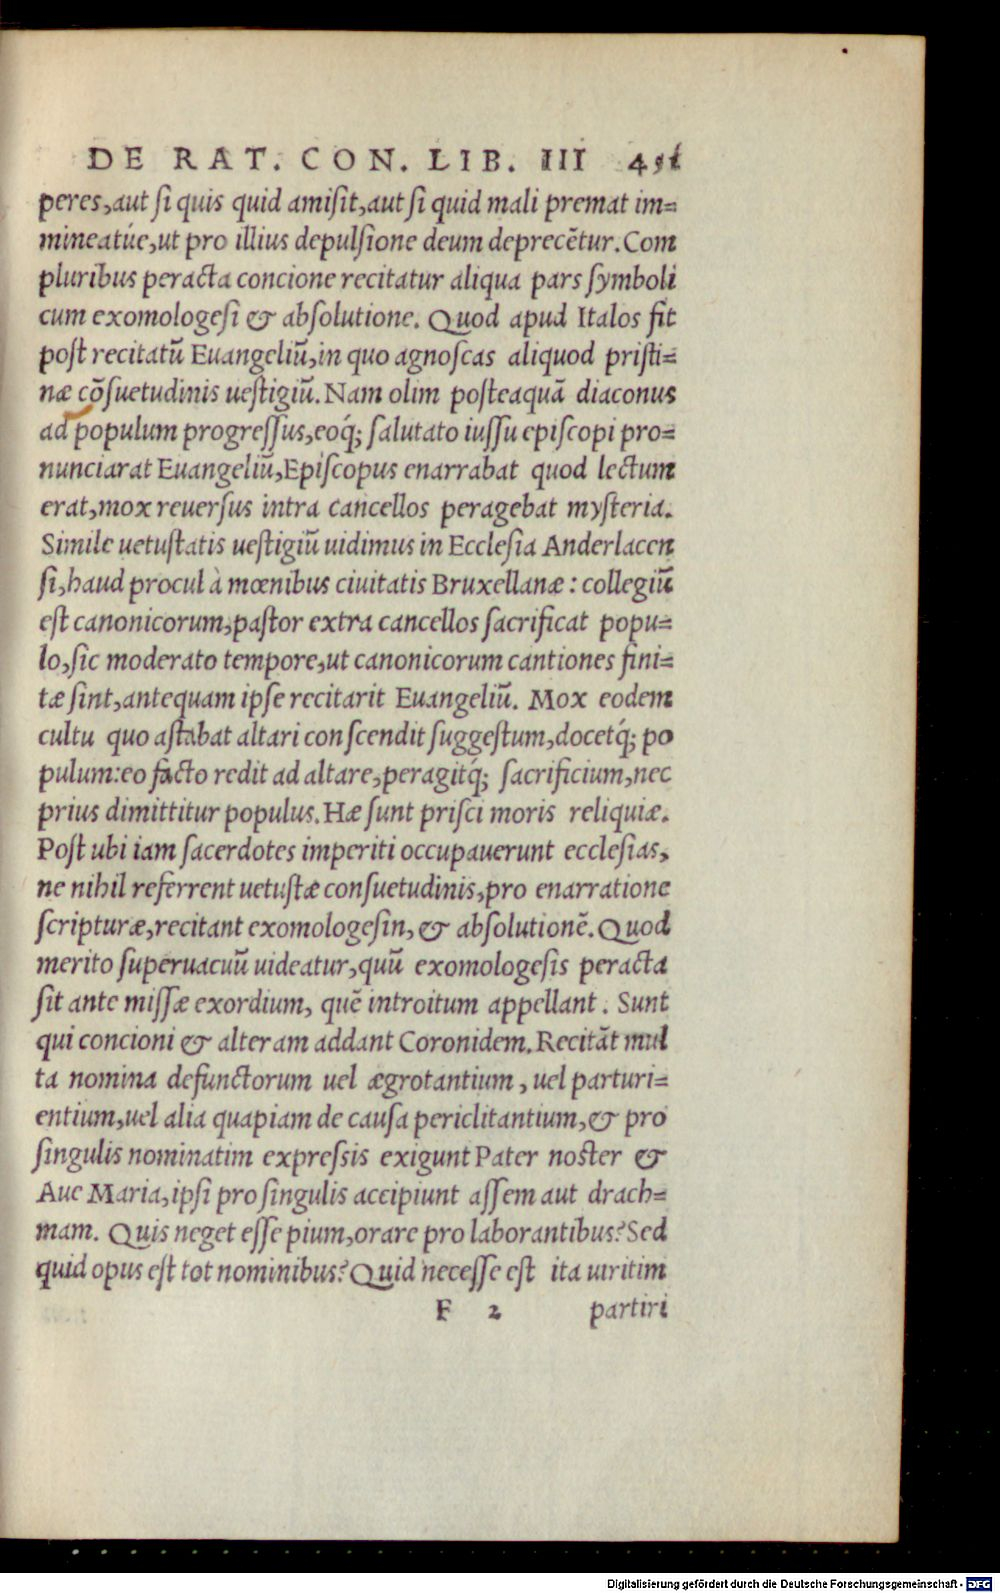 DE RAT. CON. LIB. III 451
peres, aut ſi quis quid amiſit, aut ſi quid mali premat im=
mineatúe, ut pro illius depulſione deum deprecẽtur. Com
pluribus peracta concione recitatur aliqua pars ſymboli
cum exomologeſi & abſolutione. Quod apud Italos fit
poſt recitatũ Euangeliũ, in quo agnoſcas aliquod priſti=
næ cõſuetudinis ueſtigiũ. Nam olim poſteaquã diaconus
ad populum progreſſus, eoq́; ſalutato iuſſu epiſcopi pro=
nunciarat Euangeliũ, Epiſcopus enarrabat quod lectum
erat, mox reuerſus intra cancellos peragebat myſteria.
Simile uetuſtatis ueſtigiũ uidimus in Eccleſia Anderlacen
ſi, haud procul à mœnibus ciuitatis Bruxellanæ: collegiũ
eſt canonicorum, paſtor extra cancellos ſacrificat popu=
lo, ſic moderato tempore, ut canonicorum cantiones fini=
tæ ſint, antequam ipſe recitarit Euangeliũ. Mox eodem
cultu quo aſtabat altari conſcendit ſuggeſtum, docetq́; po
pulum: eo facto redit ad altare, peragitq́; ſacrificium, nec
prius dimittitur populus. Hæ ſunt priſci moris reliquiæ.
Poſt ubi iam ſacerdotes imperiti occupauerunt eccleſias,
ne nihil referrent uetuſtæ conſuetudinis, pro enarratione
ſcripturæ, recitant exomologeſin, & abſolutionẽ. Quod
merito ſuperuacuũ uideatur, quũ exomologeſis peracta
ſit ante miſſæ exordium, quẽ introitum appellant. Sunt
qui concioni & alteram addant Coronidem. Recitãt mul
ta nomina defunctorum uel ægrotantium, uel parturi=
entium, uel alia quapiam de cauſa periclitantium, & pro
ſingulis nominatim expreſsis exigunt Pater noſter &
Aue Maria, ipſi pro ſingulis accipiunt aſſem aut drach=
mam. Quis neget eſſe pium, orare pro laborantibus? Sed
quid opus eſt tot nominibus? Quid neceſſe eſt ita uiritim
F 2 partiri
Digitalisierung gefördert durch die Deutsche Forschungsgemeinschaft - DFG